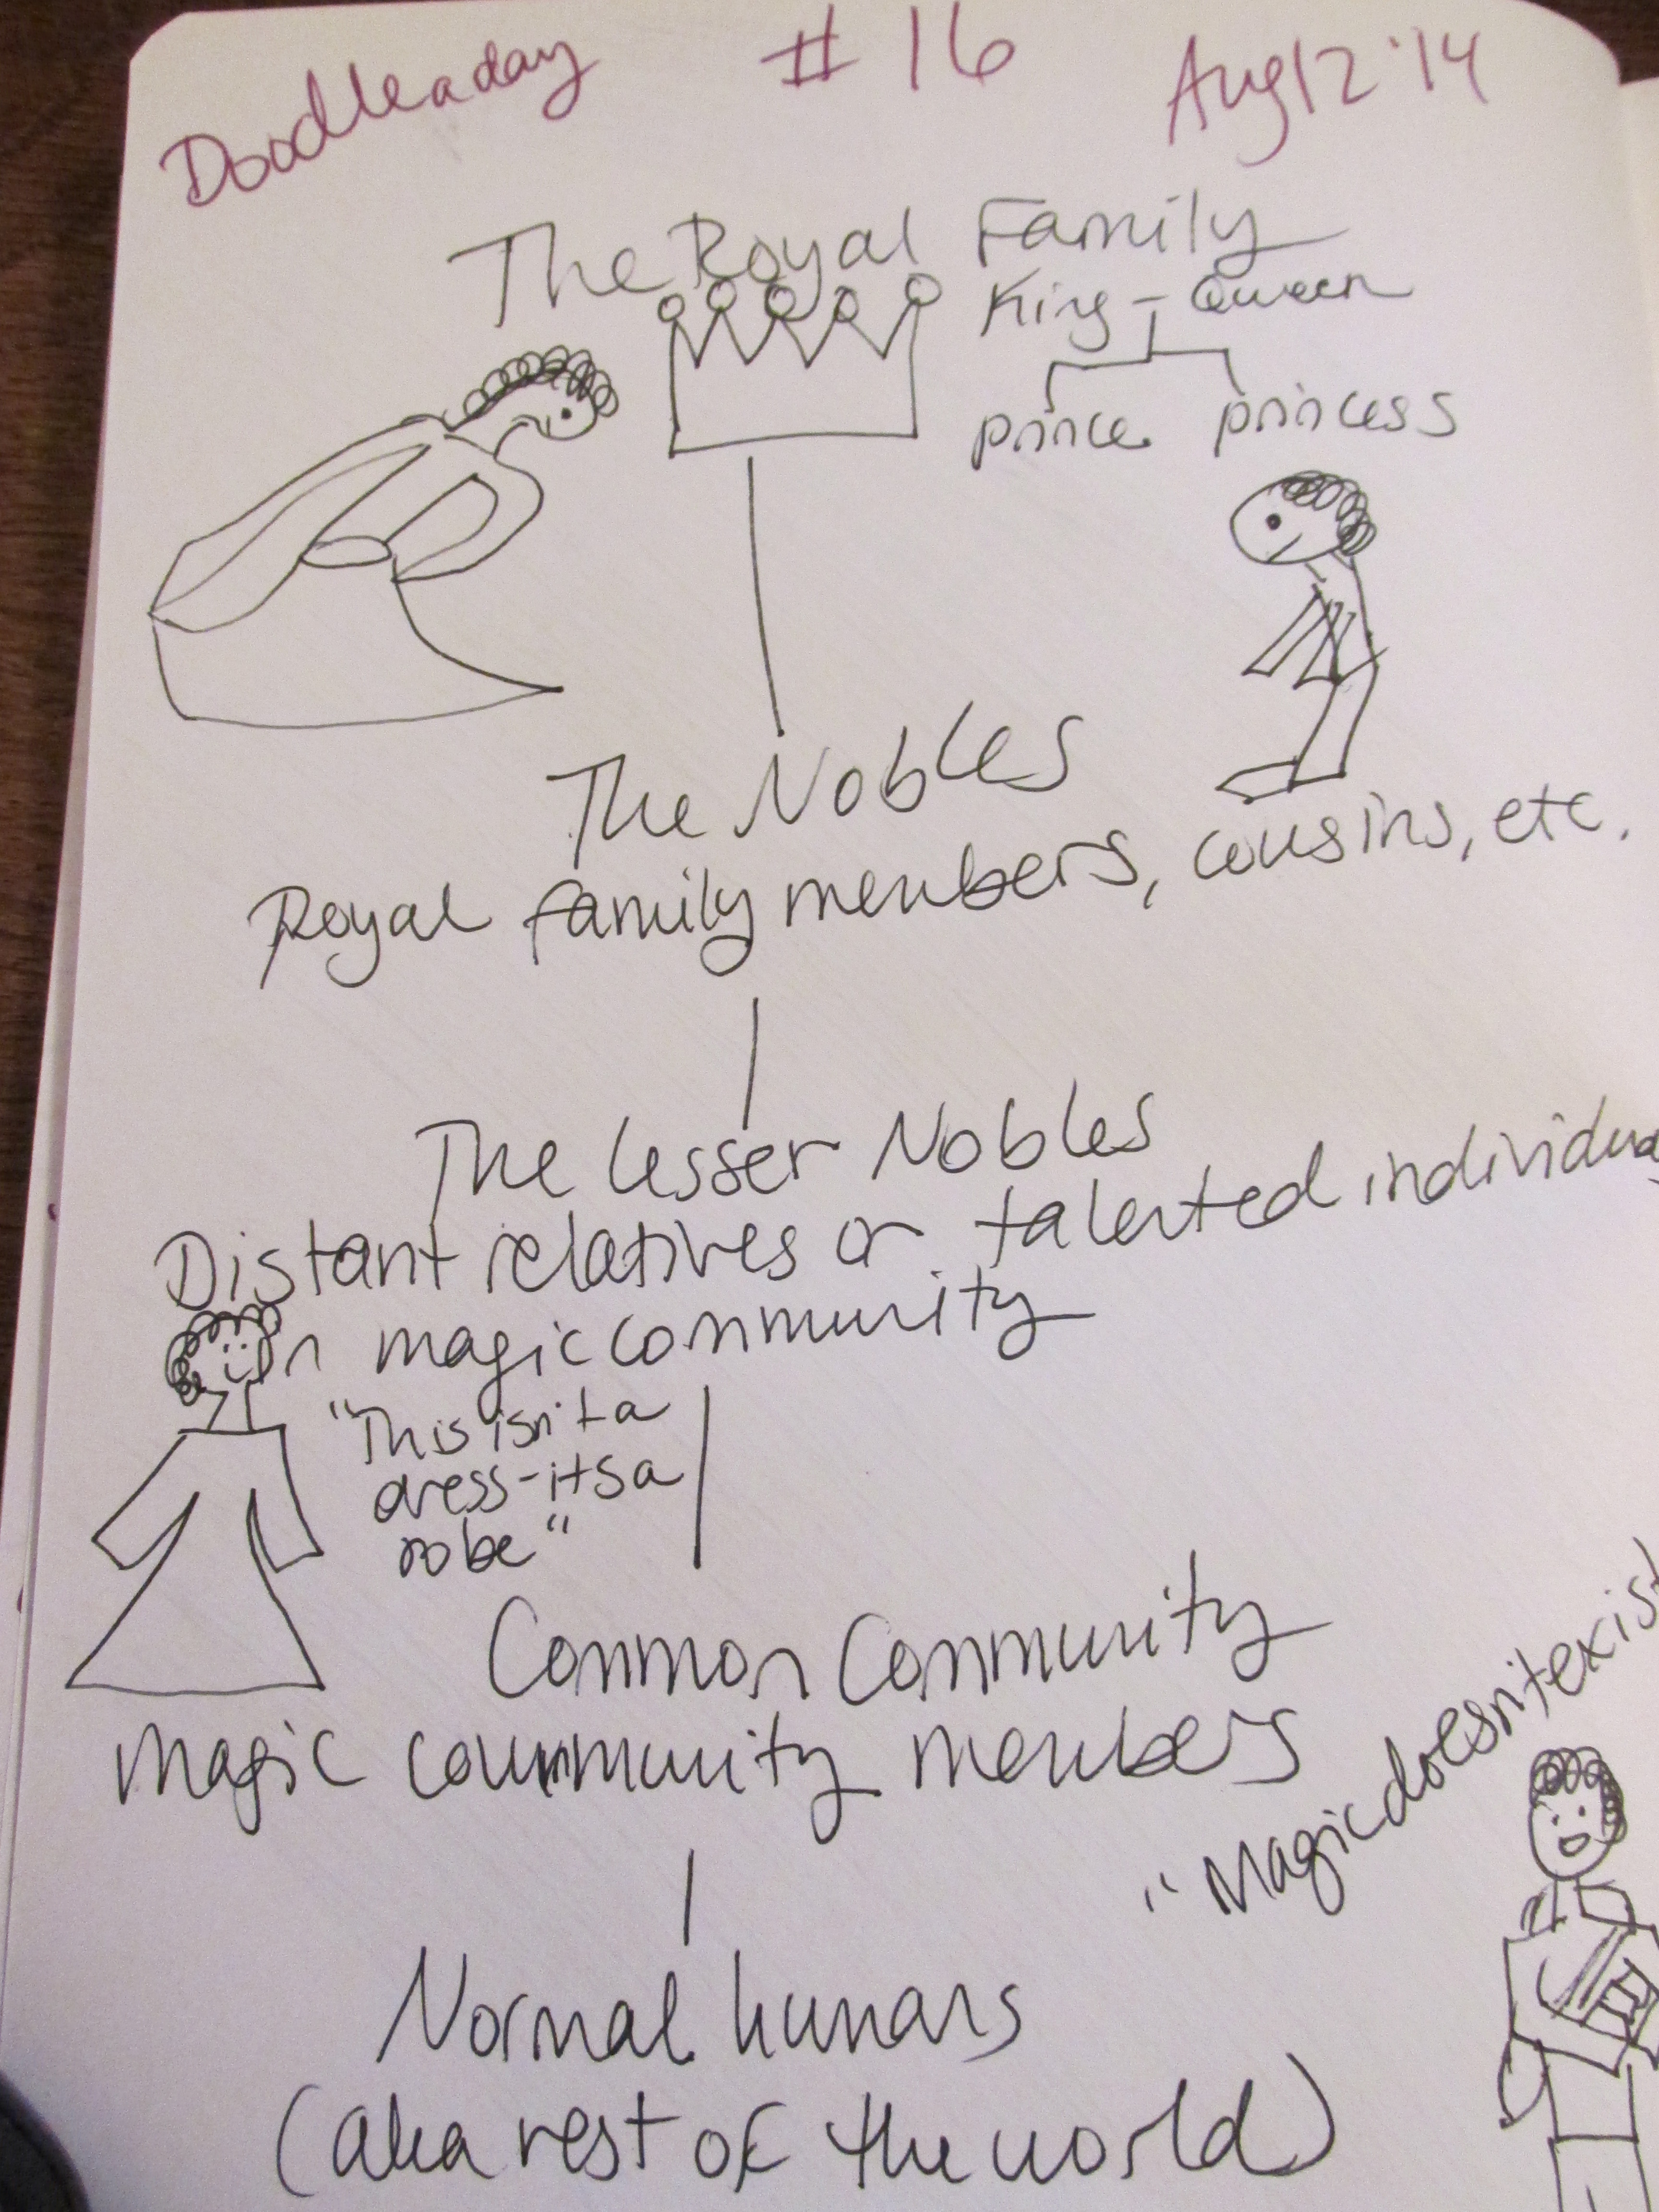 Doodleaday # 16 Aug 12 '14
The Royal Family
King - Queen
prince princess
The Nobles
Royal family members, cousins, etc.
The lesser Nobles
Distant relatives or talented individua
in magic community
"This isn't a
dress - its a
robe"
Common Community
magic community members
"Magic doesn't exist
Normal humans
(aka rest of the world)